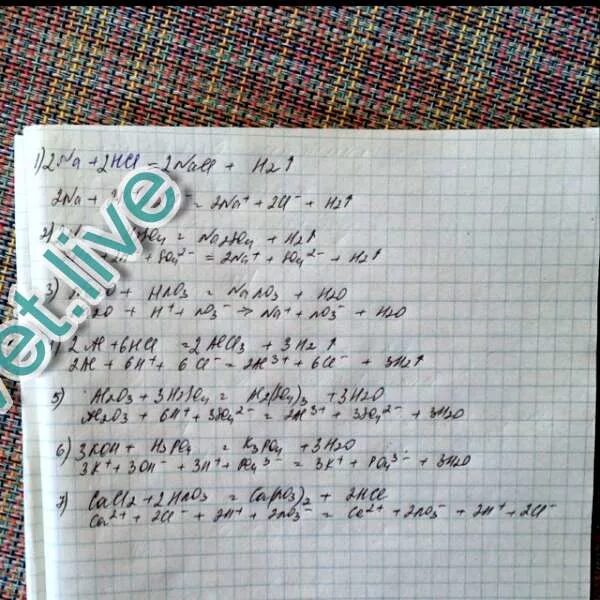 1) 2Na + 2HCl = 2NaCl + H2↑
2Na + = 2Na+ + 2Cl- + H2↑
2) = Na2SO4 + H2↑
+ SO4 2- = 2Na+ + SO4 2- + H2↑
3) + HNO3 = NaNO3 + H2O
+ H+ + NO3- => Na+ + NO3- + H2O
2Al + 6HCl = 2AlCl3 + 3H2↑
2Al + 6H+ + 6Cl- = 2Al3+ + 6Cl- + 3H2↑
5) Al2O3 + 3H2SO4 = Al2(SO4)3 + 3H2O
Al2O3 + 6H+ + 3SO4 2- = 2Al3+ + 3SO4 2- + 3H2O
6) 3KOH + H3PO4 = K3PO4 + 3H2O
3K+ + 3OH- + 3H+ + PO4 3- = 3K+ + PO4 3- + 3H2O
7) CaCl2 + 2HNO3 = Ca(NO3)2 + 2HCl
Ca2+ + 2Cl- + 2H+ + 2NO3- = Ca2+ + 2NO3- + 2H+ + 2Cl-
vet.live